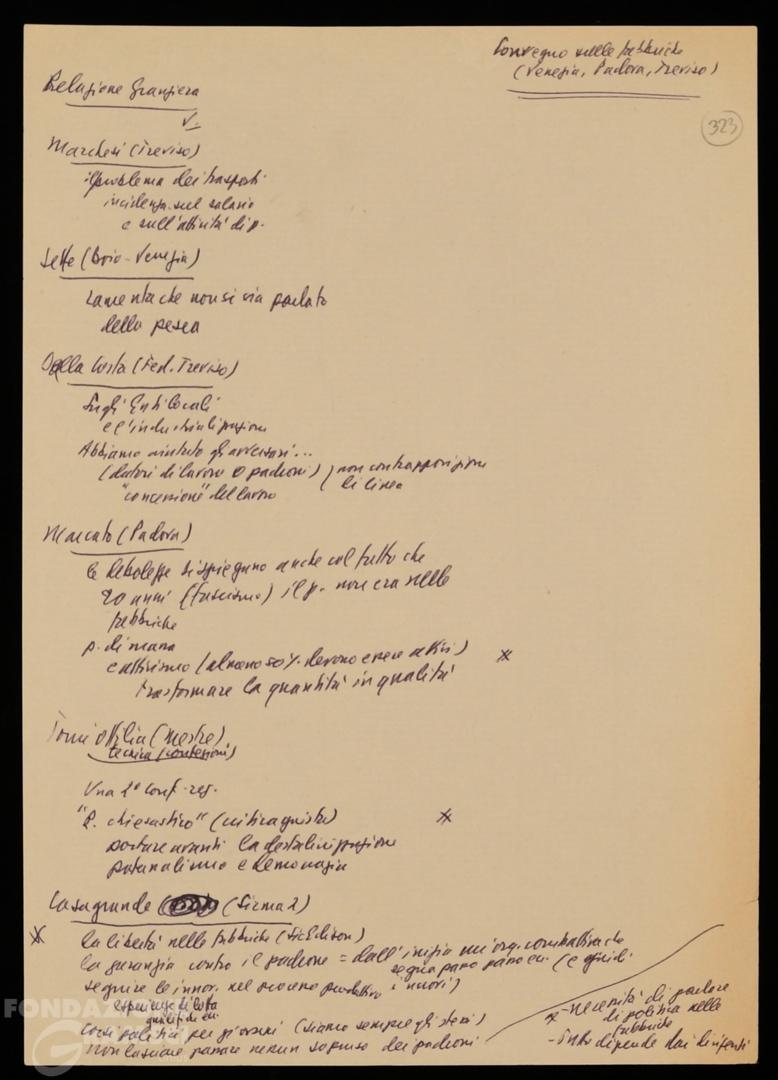 Convegno sulle fabbriche
(Venezia, Padova, Treviso)
323
Relazione Granziera
V.
Marchesi (Treviso)
il problema dei trasporti
incidenza sul salario
e sull'attività di p.
Sette (Venezia)
Lamenta che non si sia parlato
della pesca
Della Costa (Fed. Treviso)
Sugli Enti locali
e l'industrializzazione
Abbiamo aiutato gli avversari...
(datori di lavoro o padroni) non contrapposizione
di linea
"concezione" del lavoro
(Padova)
le debolezze si spiegano anche col fatto che
20 anni (fascismo) il p. non era nelle
fabbriche
p. di massa
e attivismo (almeno 50% devono essere attivi)
trasformare la quantità in qualità
Ottilia (Mestre)
tecnica (confezioni)
Una 2ª conf. reg.
"P. chiesastico" (critica giusta)
portare avanti la destalinizzazione
paternalismo e democrazia
Casagrande (Sirma 2)
la libertà nelle fabbriche (Sicedison)
la garanzia contro il padrone = dall'inizio un'org. combattiva che
segua passo passo (e quindi
seguire le innov. nel processo produttivo i nuovi)
esperienze di lotta
qualifiche
corsi politici per giovani (siamo sempre gli stessi)
non lasciare passare nessun sopruso dei padroni
- necessità di parlare
di politica nelle
fabbriche
- tutto dipende dai dirigenti
FONDAZIONE
G